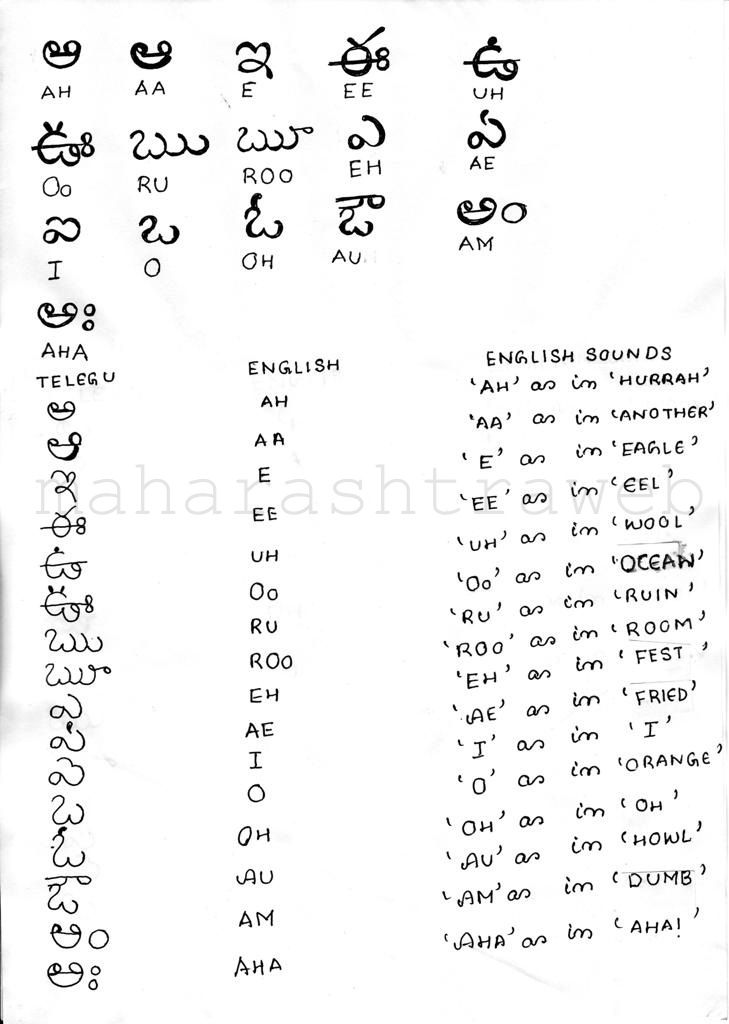 అ ఆ ఇ ఈ ఉ
AH AA E EE UH
ఊ ఋ ౠ ఎ ఏ
Oo RU ROO EH AE
ఐ ఒ ఓ ఔ అం
I O OH AU AM
అః
AHA
TELEGU ENGLISH ENGLISH SOUNDS
అ AH 'AH' as in 'HURRAH'
ఆ AA 'AA' as in 'ANOTHER'
ఇ E 'E' as in 'EAGLE'
maharashtraweb
ఈ EE 'EE' as in 'EEL'
ఉ UH 'UH' as in 'WOOL'
ఊ Oo 'Oo' as in 'OCEAN'
ఋ RU 'RU' as in 'RUIN'
ౠ ROO 'ROO' as in 'ROOM'
ఎ EH 'EH' as in 'FEST'
ఏ AE 'AE' as in 'FRIED'
ఐ I 'I' as in 'I'
ఒ O 'O' as in 'ORANGE'
ఓ OH 'OH' as in 'OH'
ఔ AU 'AU' as in 'HOWL'
అం AM 'AM' as in 'DUMB'
అః AHA 'AHA' as in 'AHA!'